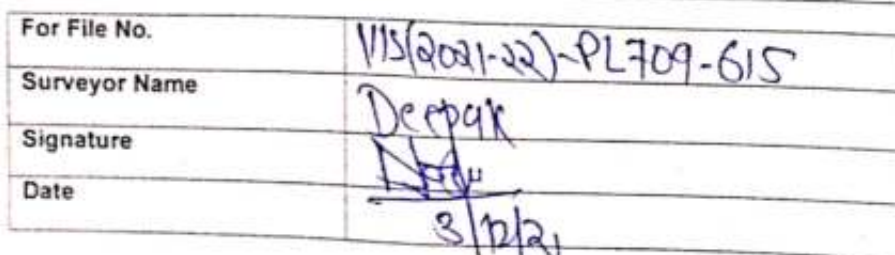 For File No. VIS(2021-22)-PL709-615
Surveyor Name Deepak
Signature
Date 3/12/21